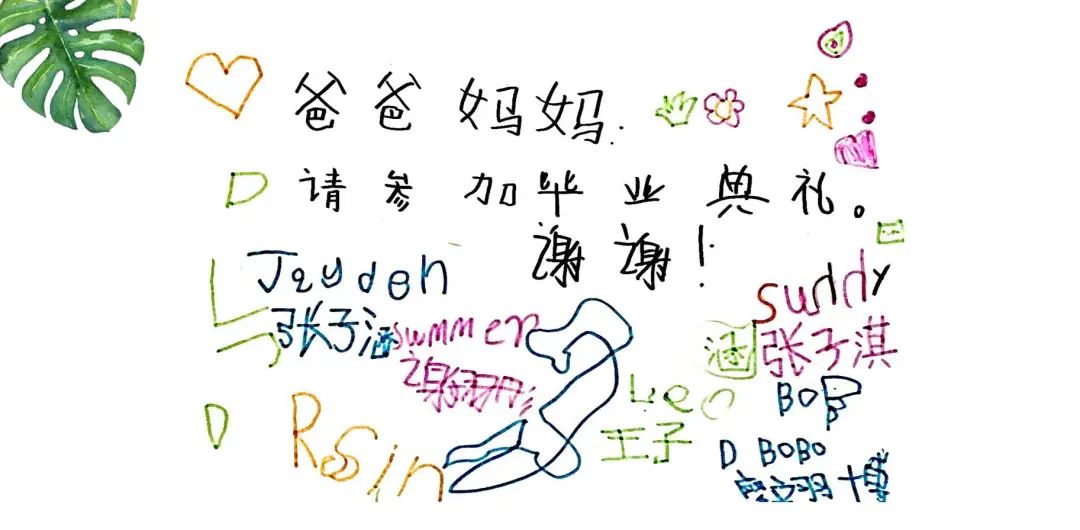 爸爸妈妈.
D 请参加毕业典礼。
谢谢!
Jayden
张子涵
summer
谢
suddy
涵 张子淇
Leo
王子
BOB
Rsin
D
D BOBO
羽博